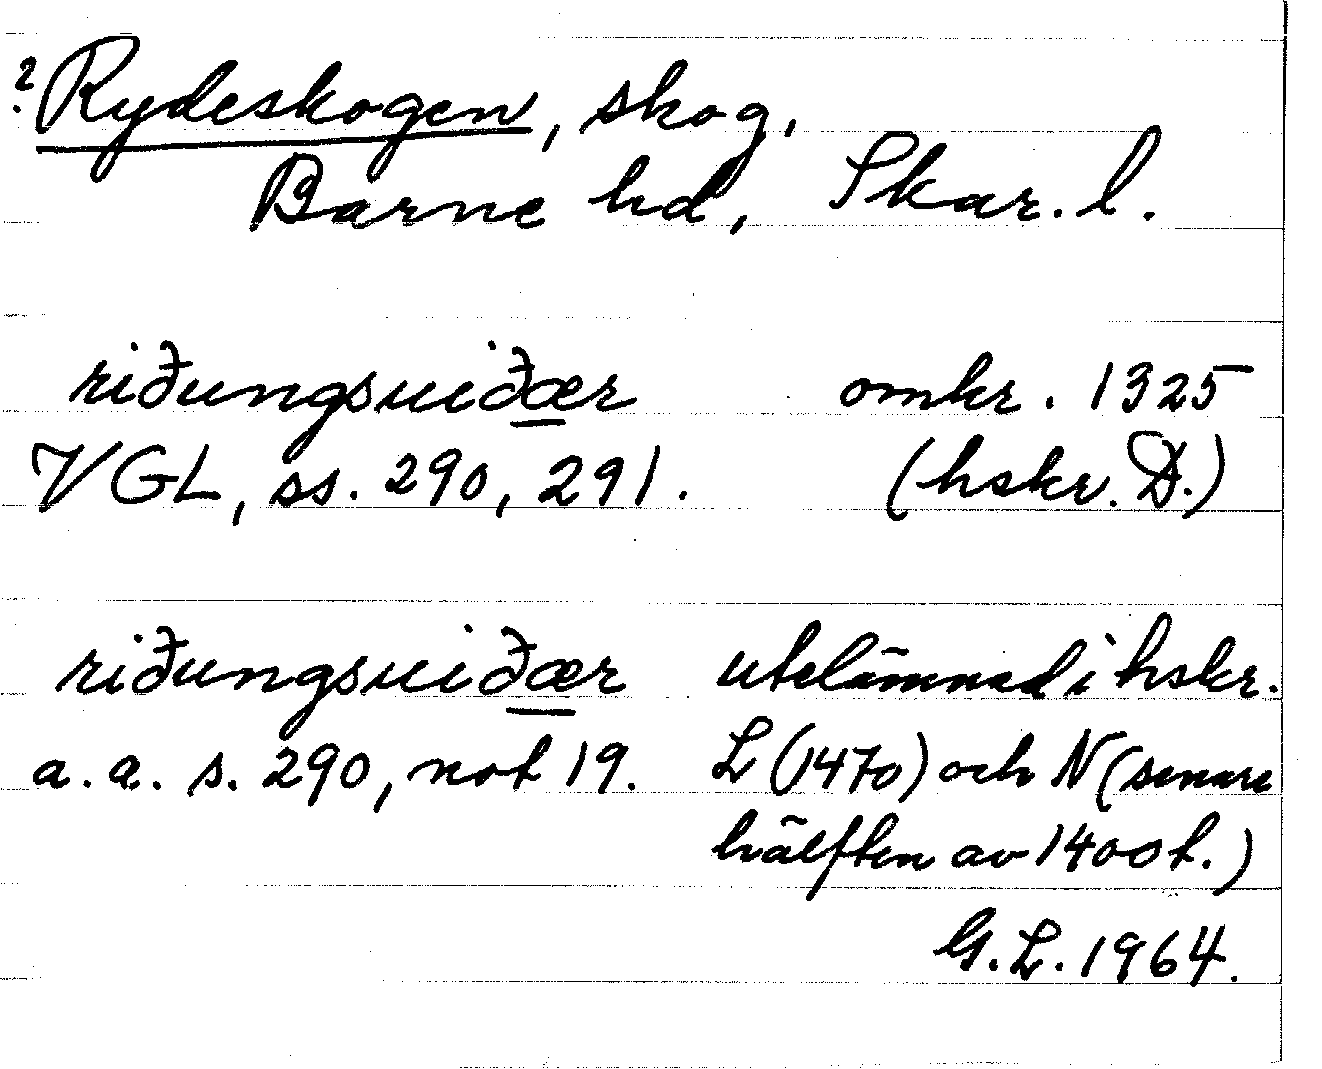 ? Rydeskogen, skog,
Barne hd, Skar. l.
riðungsuiðær omkr. 1325
VGL, ss. 290, 291. (hskr. D.)
riðungsuiðær utelämnad i hskr.
a. a. s. 290, not 19. L (1470) och N (senare
hälften av 1400 t.)
G. L. 1964.